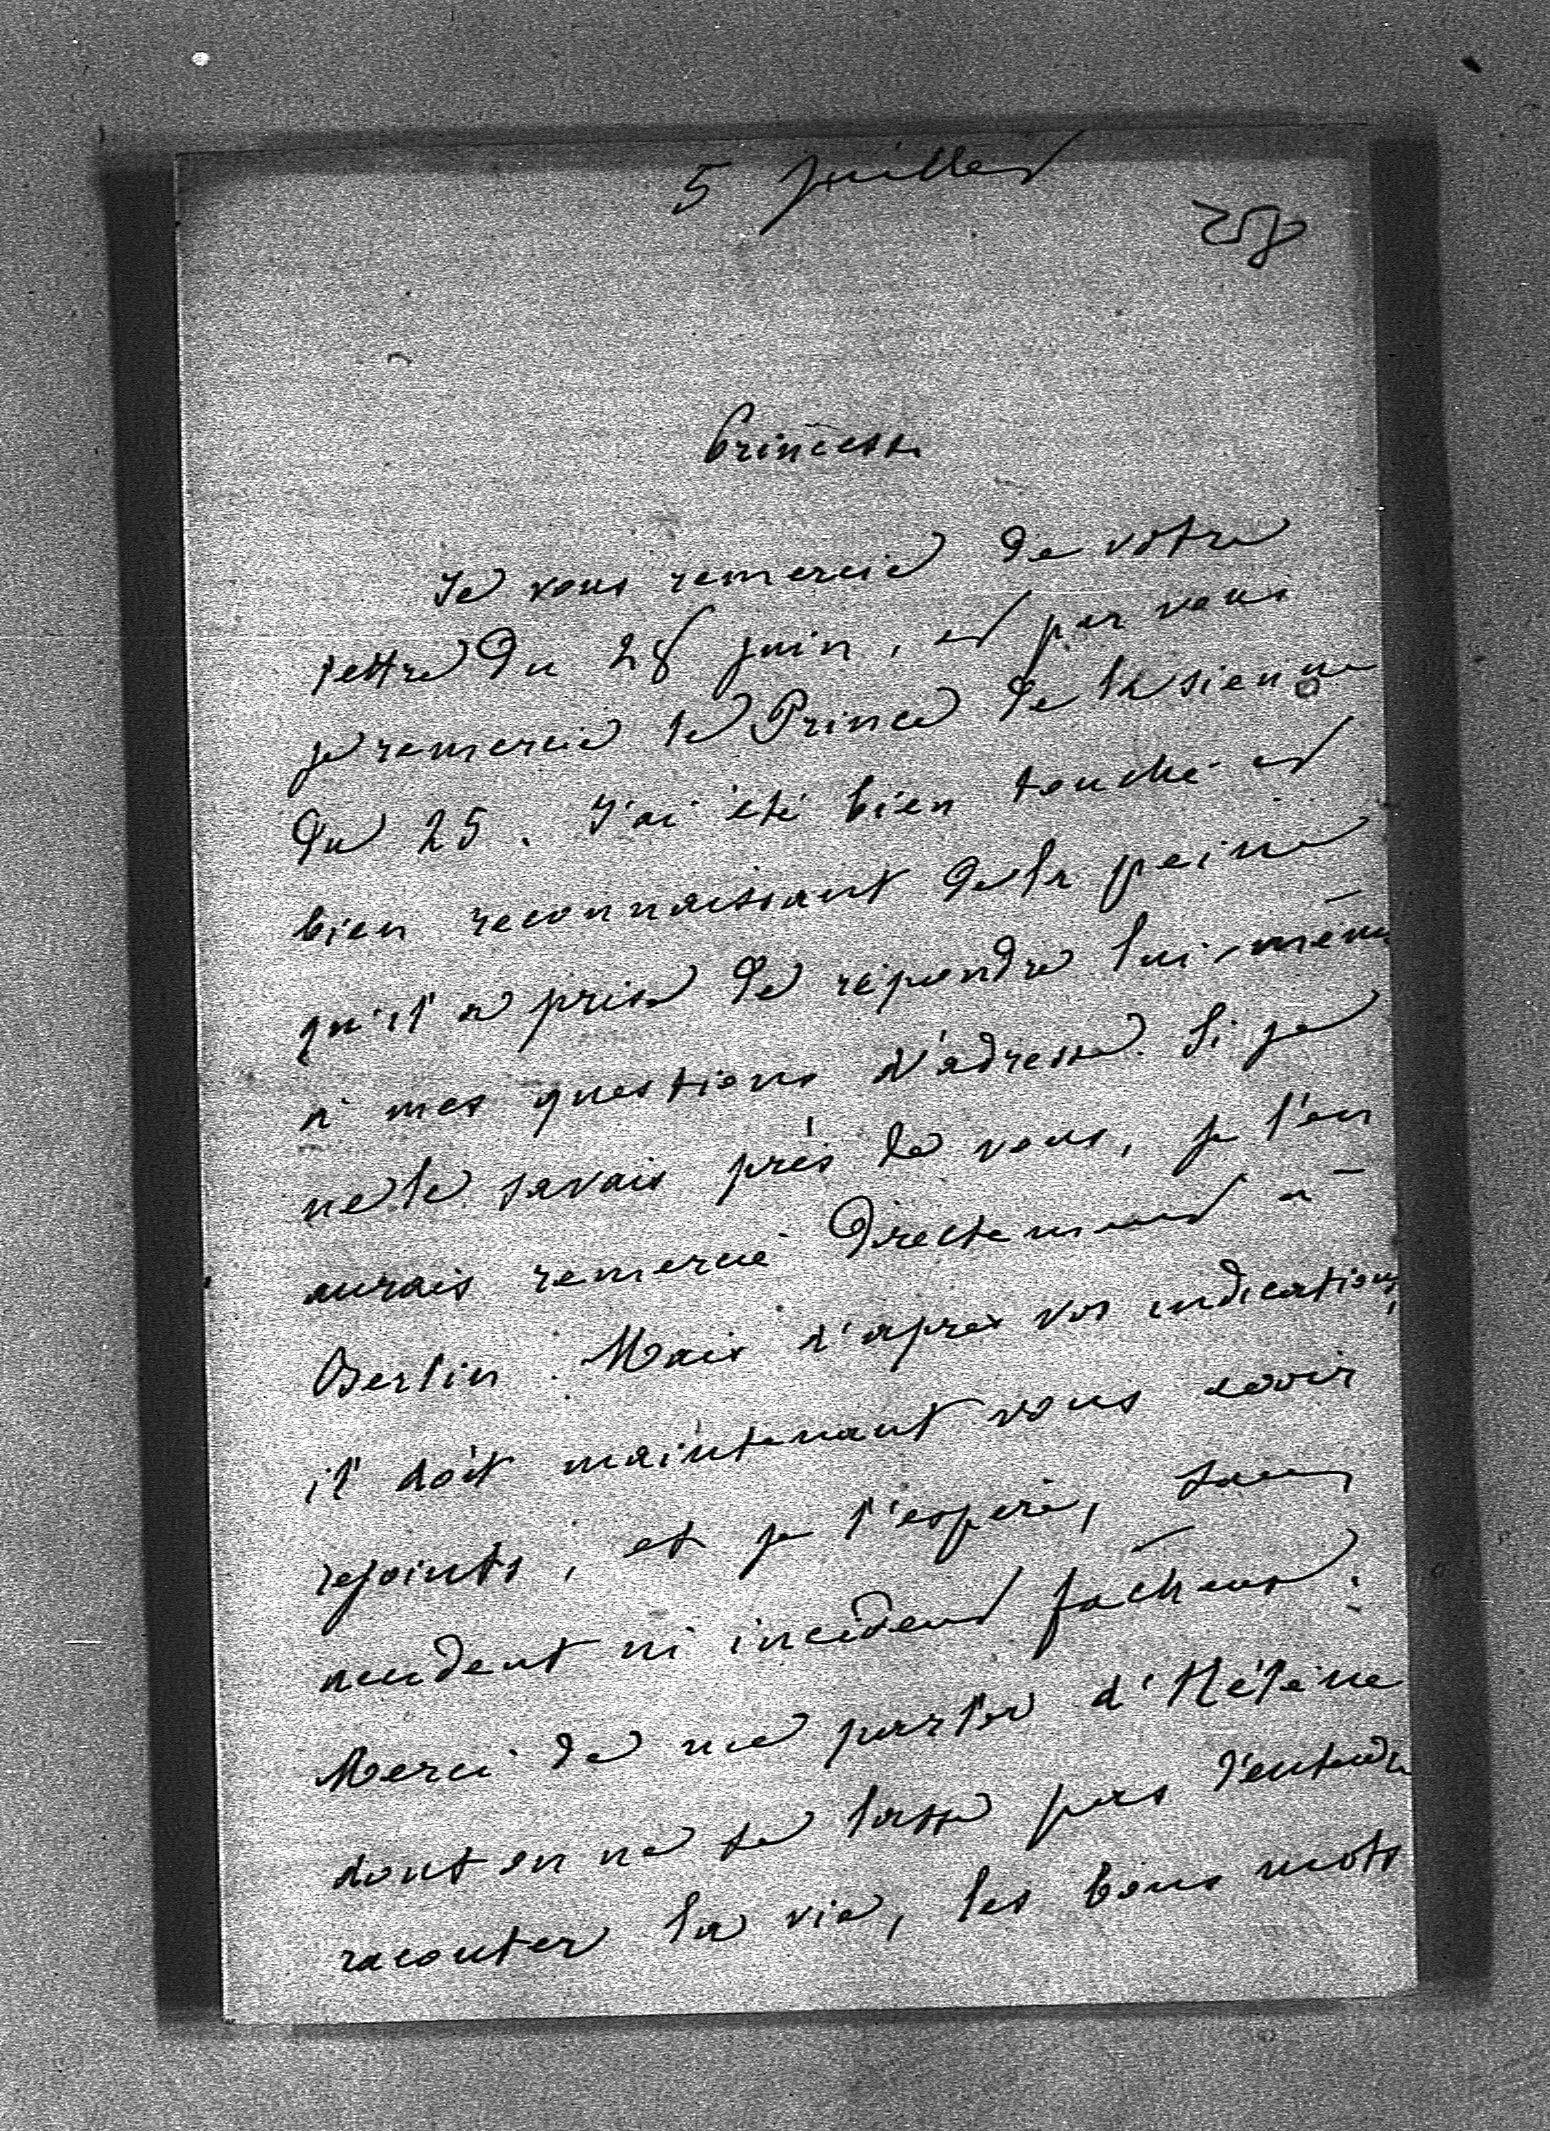 5 juillet
Princesse
Je vous remercie de votre
lettre du 28 juin, et par vous
je remercie le Prince de la sienne
du 25. J'ai été bien touché et
bien reconnaissant de la peine
qu'il a prise de répondre lui-même
à mes questions d'adresse. Si je
ne le savais près de vous, je l'en
aurais remercié directement à
Berlin. Mais d'après vos indications,
il doit maintenant vous avoir
rejoints, et je l'espère, sans
accident ni incident fâcheux.
Merci de me parler d'Hélène
dont on ne se lasse pas d'entendre
raconter la vie, les bons mots